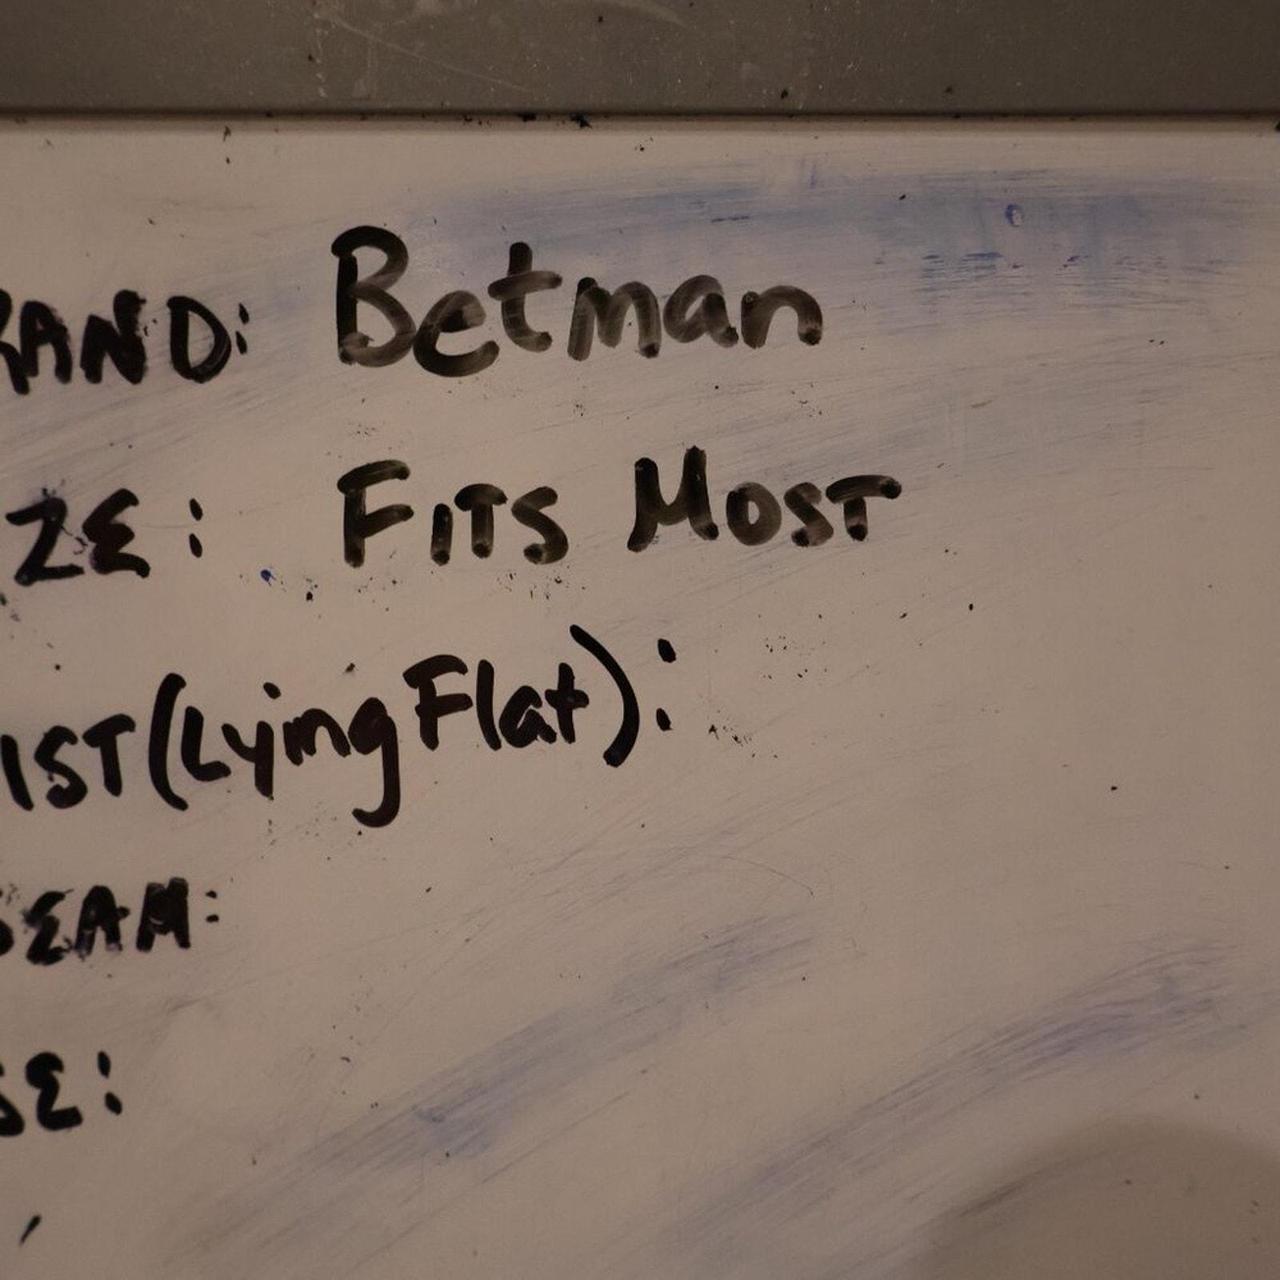 RAND: Betman
ZE: FITS MOST
IST (Lying Flat):
SEAM:
SE: